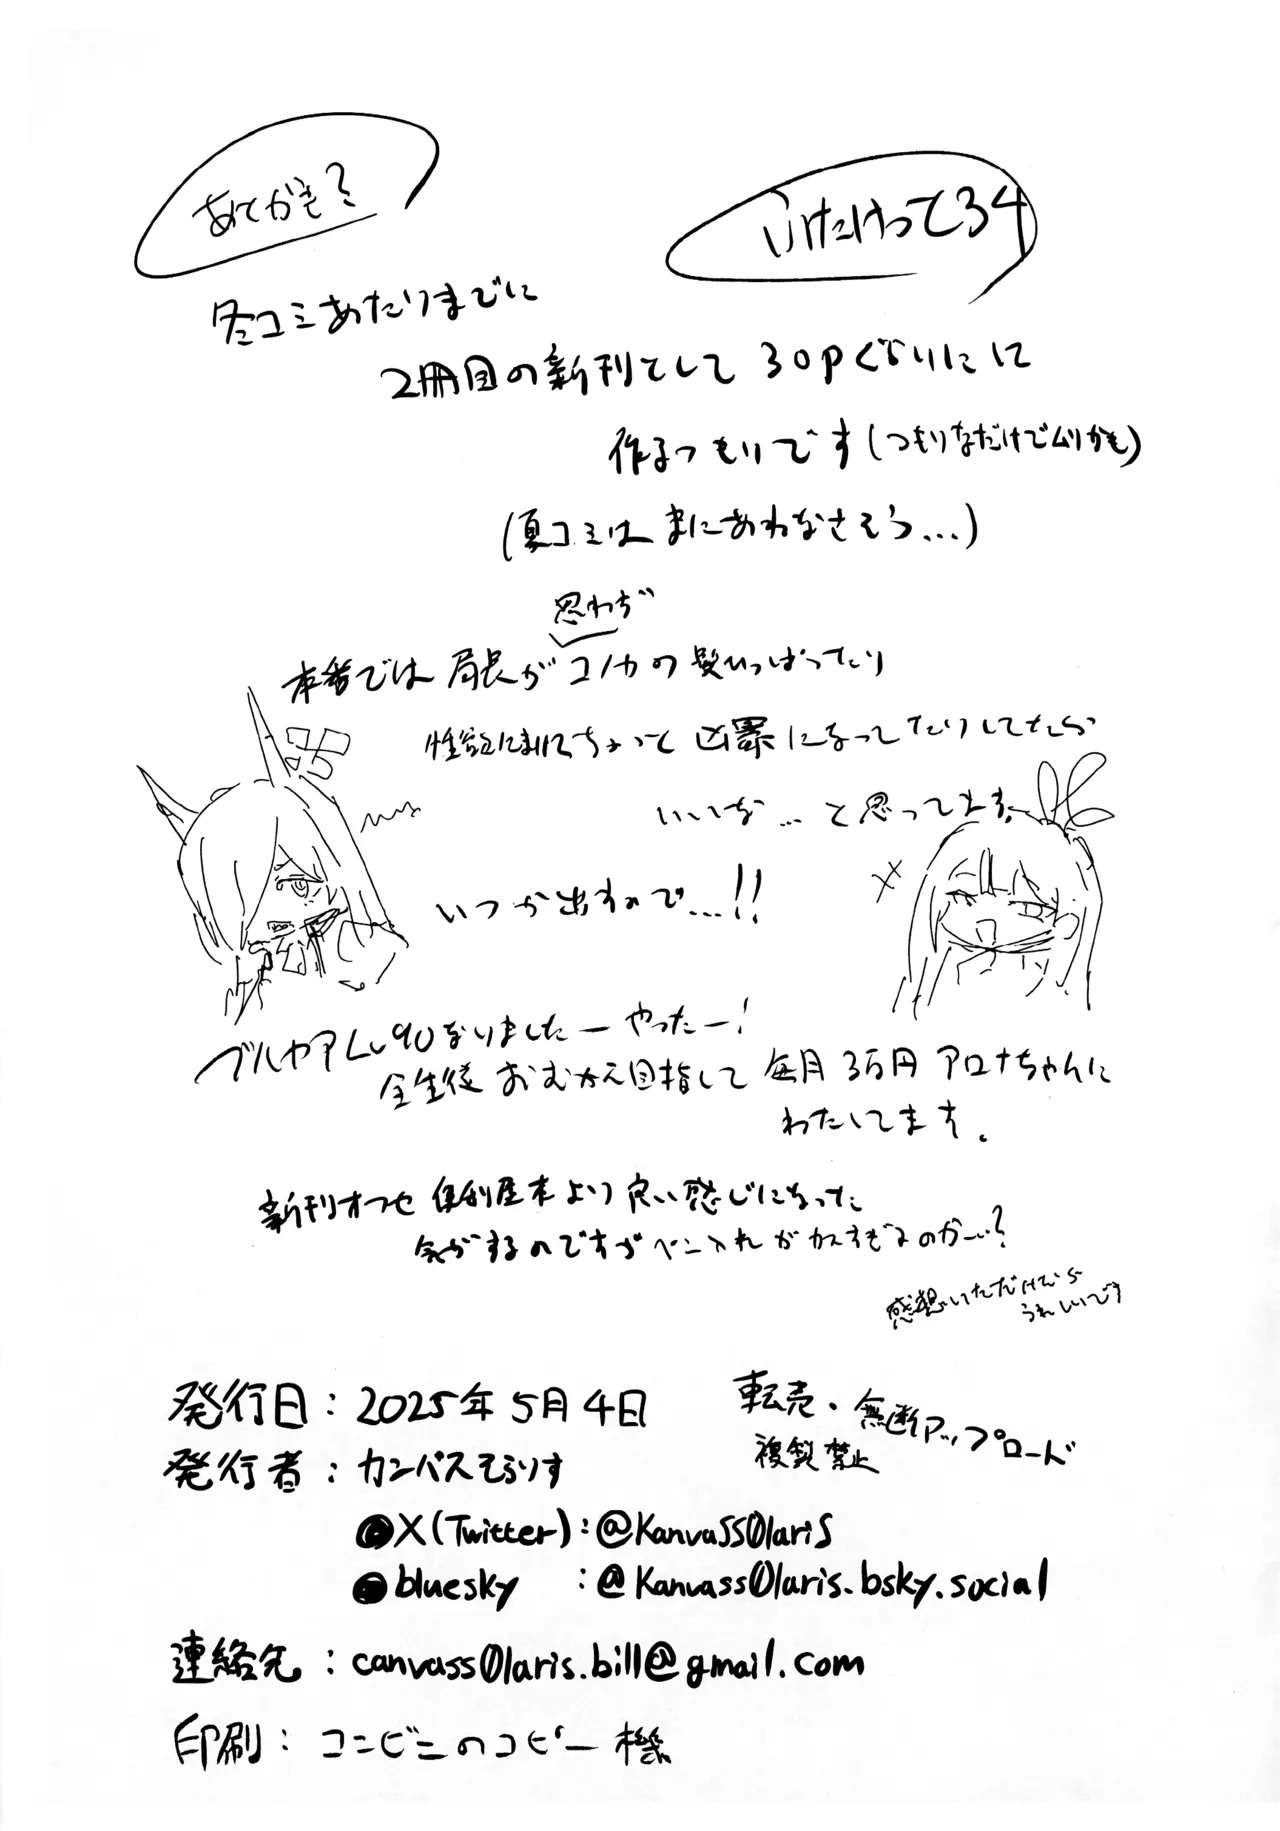 あとがき?
いけたけって34
冬コミあたりまでに
2冊目の新刊として30Pぐらいにに
作るつもりです(つもりなだけでムリかも)
(夏コミはまにあわなさそう…)
思わず
本番では局長がコノカの髪ひっぱったり
性欲にまけてちょっと凶暴になってたりしてたら
いいな…と思ってます
いつか出すので…!!
ブルカアLv90なりましたーやったー!
全生徒おむかえ目指して毎月3万円アロナちゃんに
わたしてます。
新刊オフセ便利屋本より良い感じになった
気がするのですがペン入れがカスすぎるのかーい?
感想いただけたら
うれしいです
発行日:2025年5月4日
転売・無断アップロード
複製禁止
発行者:カンバスそらりす
●X(Twitter):@Kanvass0laris
●bluesky :@Kanvass0laris.bsky.social
連絡先:canvass0laris.bill@gmail.com
印刷:コンビニのコピー機